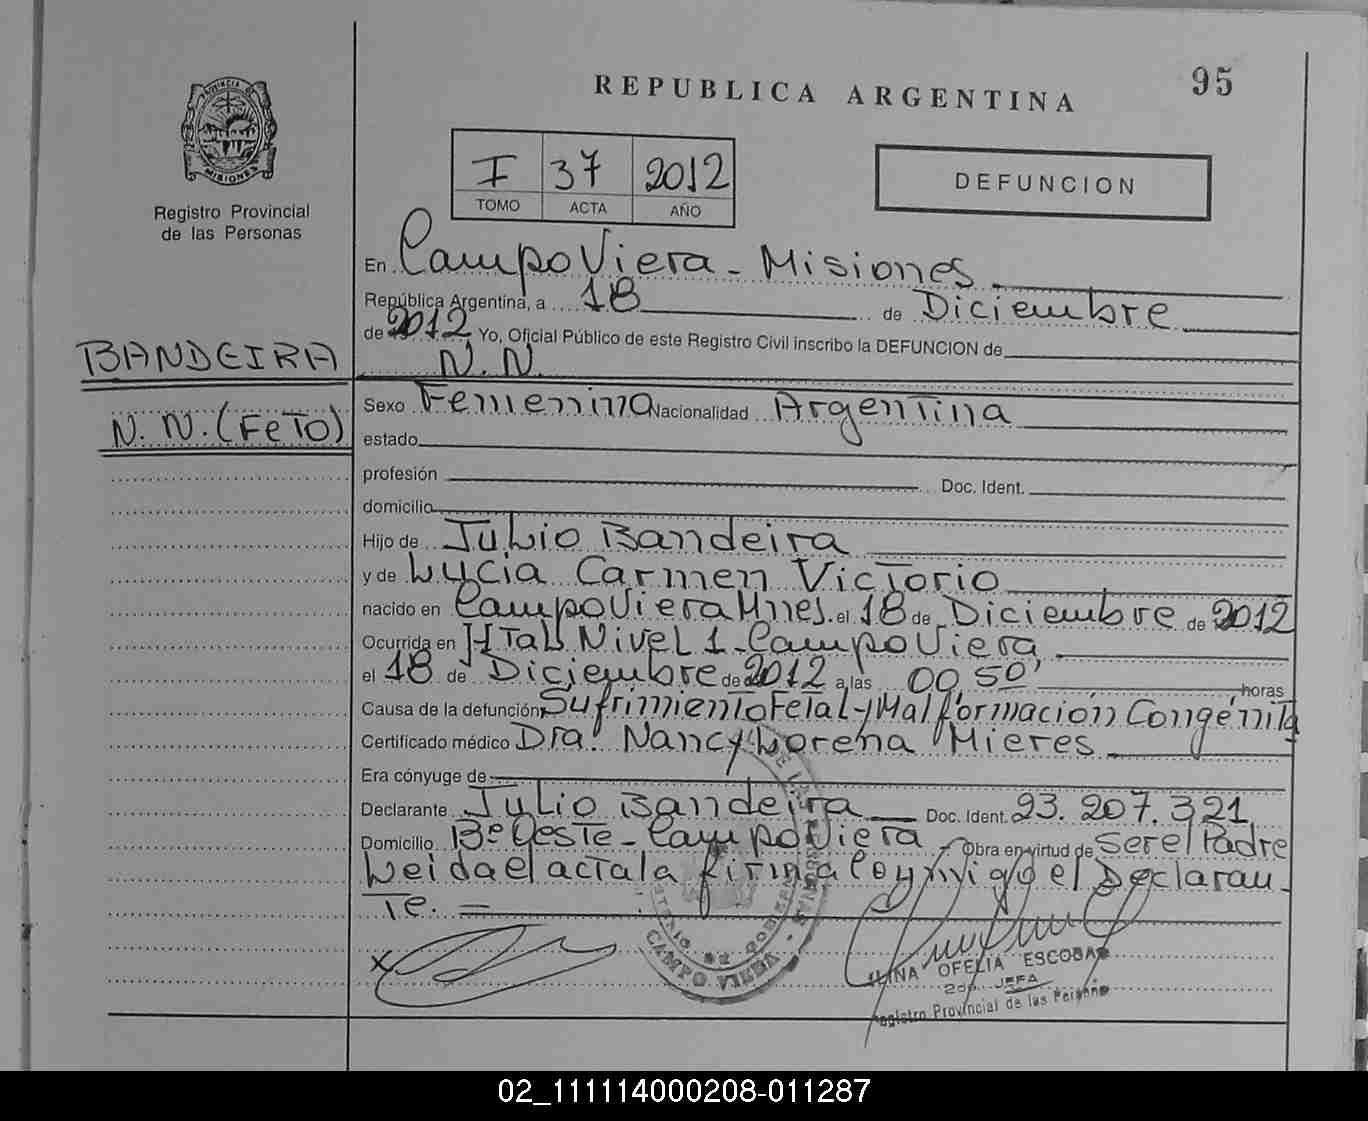 95
REPUBLICA ARGENTINA
PROVINCIA DE
MISIONES
Registro Provincial
de las Personas
I 37 2012
TOMO ACTA AÑO
DEFUNCION
En Campo Viera - Misiones
República Argentina, a 18 de Diciembre
de 2012 Yo, Oficial Público de este Registro Civil inscribo la DEFUNCION de
N.N.
BANDEIRA
N.N. (FeTO)
Sexo Femenina Nacionalidad Argentina
estado
profesión Doc. Ident.
domicilio
Hijo de Julio Bandeira
y de Lycia Carmen Victorio
nacido en Campo Viera Mnes. el 18 de Diciembre de 2012
Ocurrida en HTal Nivel 1 - Campo Viera
el 18 de Diciembre de 2012 a las 00,50' horas
Causa de la defunción Sufrimiento Fetal - y Malformación Congénita
Certificado médico Dra. Nancy Lorena Mieres
Era cónyuge de
Declarante Julio Bandeira Doc. Ident. 23.207.321
Domicilio Bº Oeste - Campo Viera - Obra en virtud de ser el Padre
Leida el acta la firma conmigo el Declaran-
Te. =
x
CAMPO VIERA
OFELIA ESCOBAR
JEFA
Registro Provincial de las Personas
02_111114000208-011287